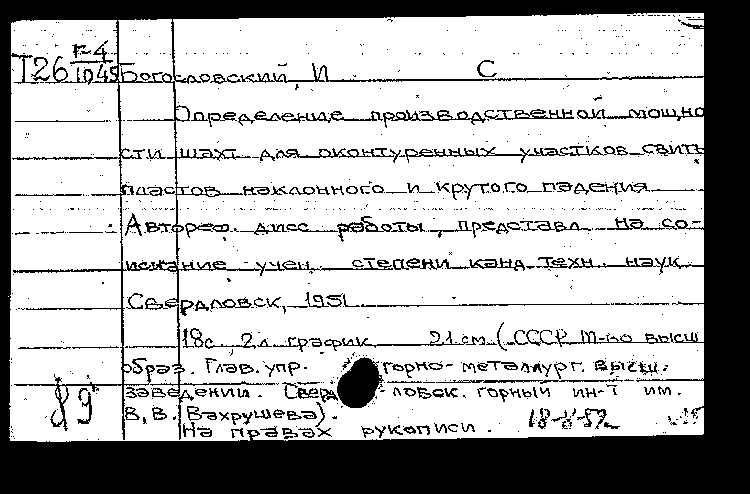 Т26 Г-4/1045 Богословский, И С
Определение производственной мощно
сти шахт для оконтуренных участков свиты
пластов наклонного и крутого падения
Автореф. дисс работы, представл на со-
искание учен. степени канд. техн. наук.
Свердловск, 1951
18с., 2л. график 21 см (СССР М-во высш
образ. Глав. упр. горно-металлург. высш.
заведений. Сверд-ловск. горный ин-т им.
В. В. Вахрушева).
На правах рукописи. 18-8-52
89